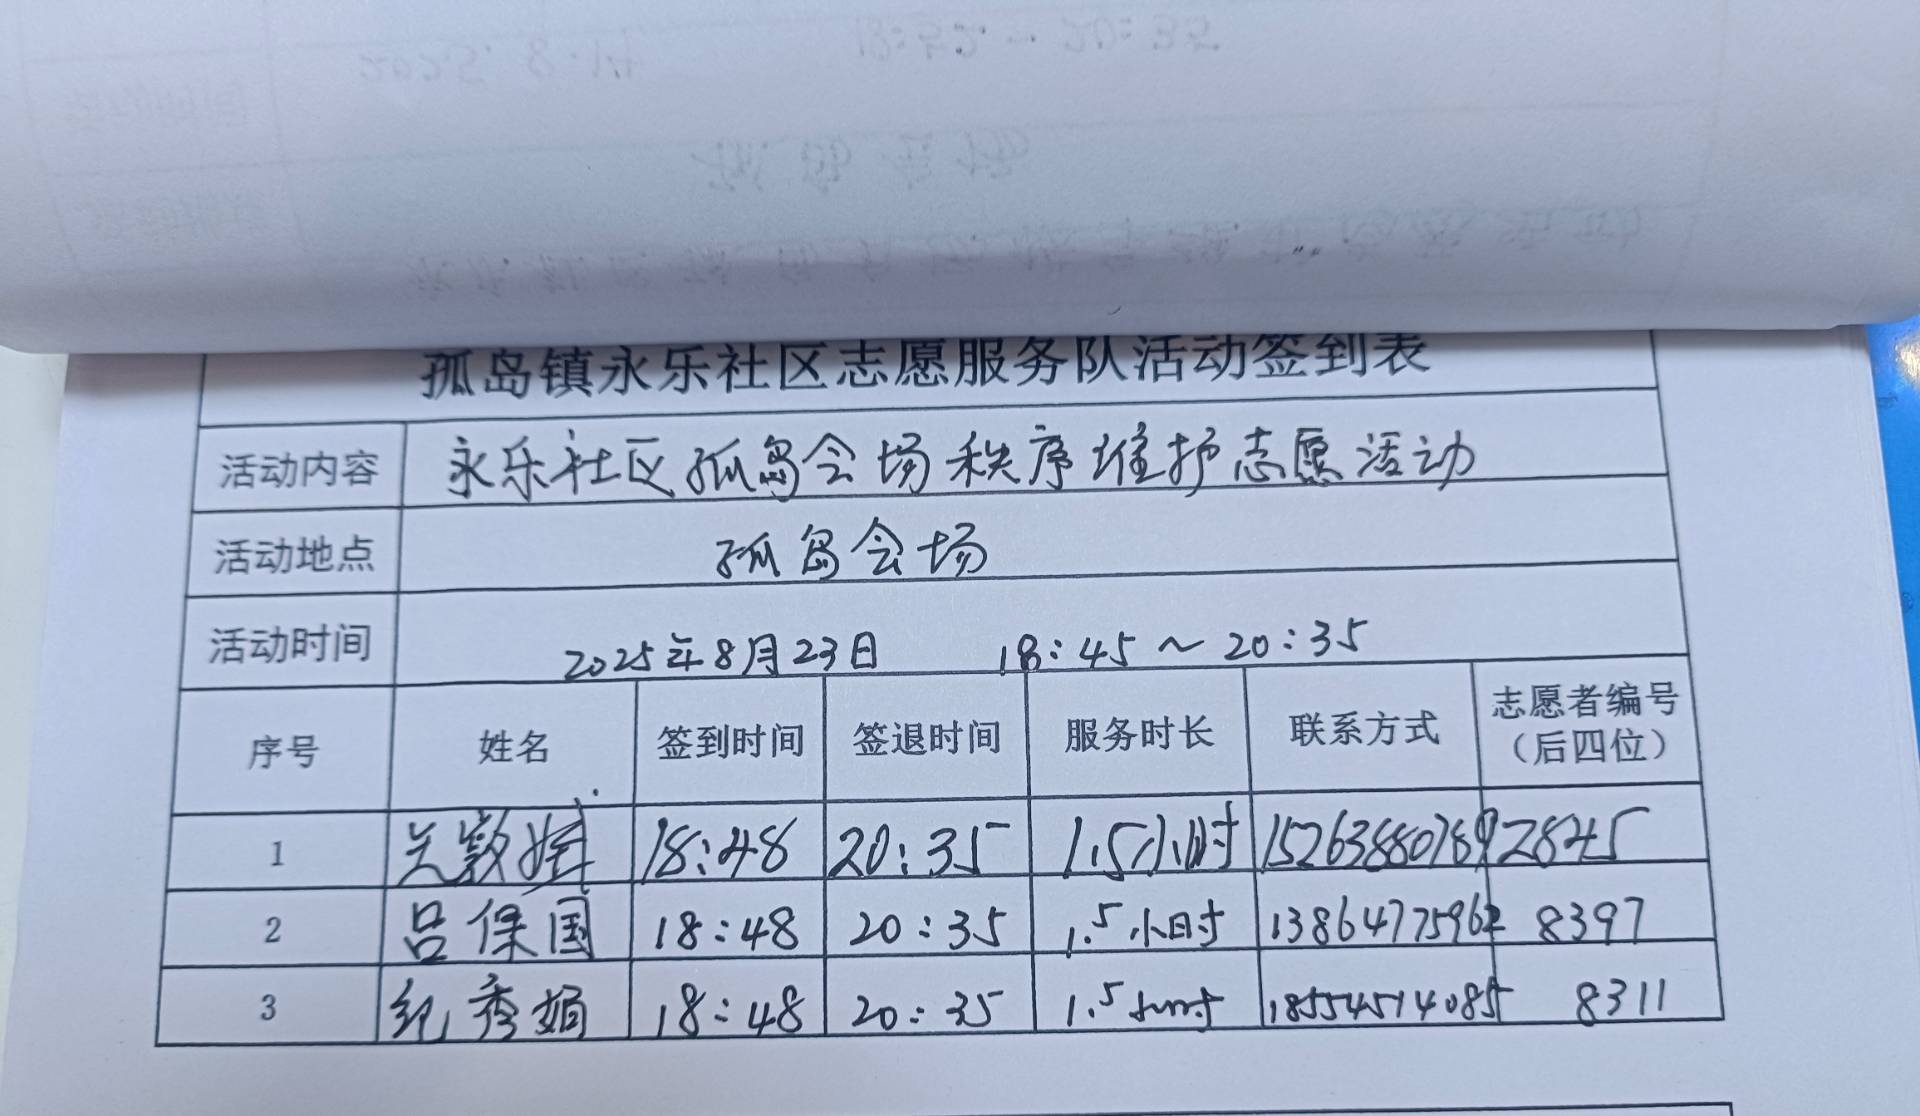 孤岛镇永乐社区志愿服务队活动签到表
活动内容 永乐社区孤岛会场秩序维护志愿活动
活动地点 孤岛会场
活动时间 2025年8月23日 18:45~20:35
序号 姓名 签到时间 签退时间 服务时长 联系方式 志愿者编号（后四位）
1 18:48 20:35 1.5小时 15263880789 2845
2 吕保国 18:48 20:35 1.5小时 13864775962 8397
3 纪秀娟 18:48 20:35 1.5小时 18554514085 8311